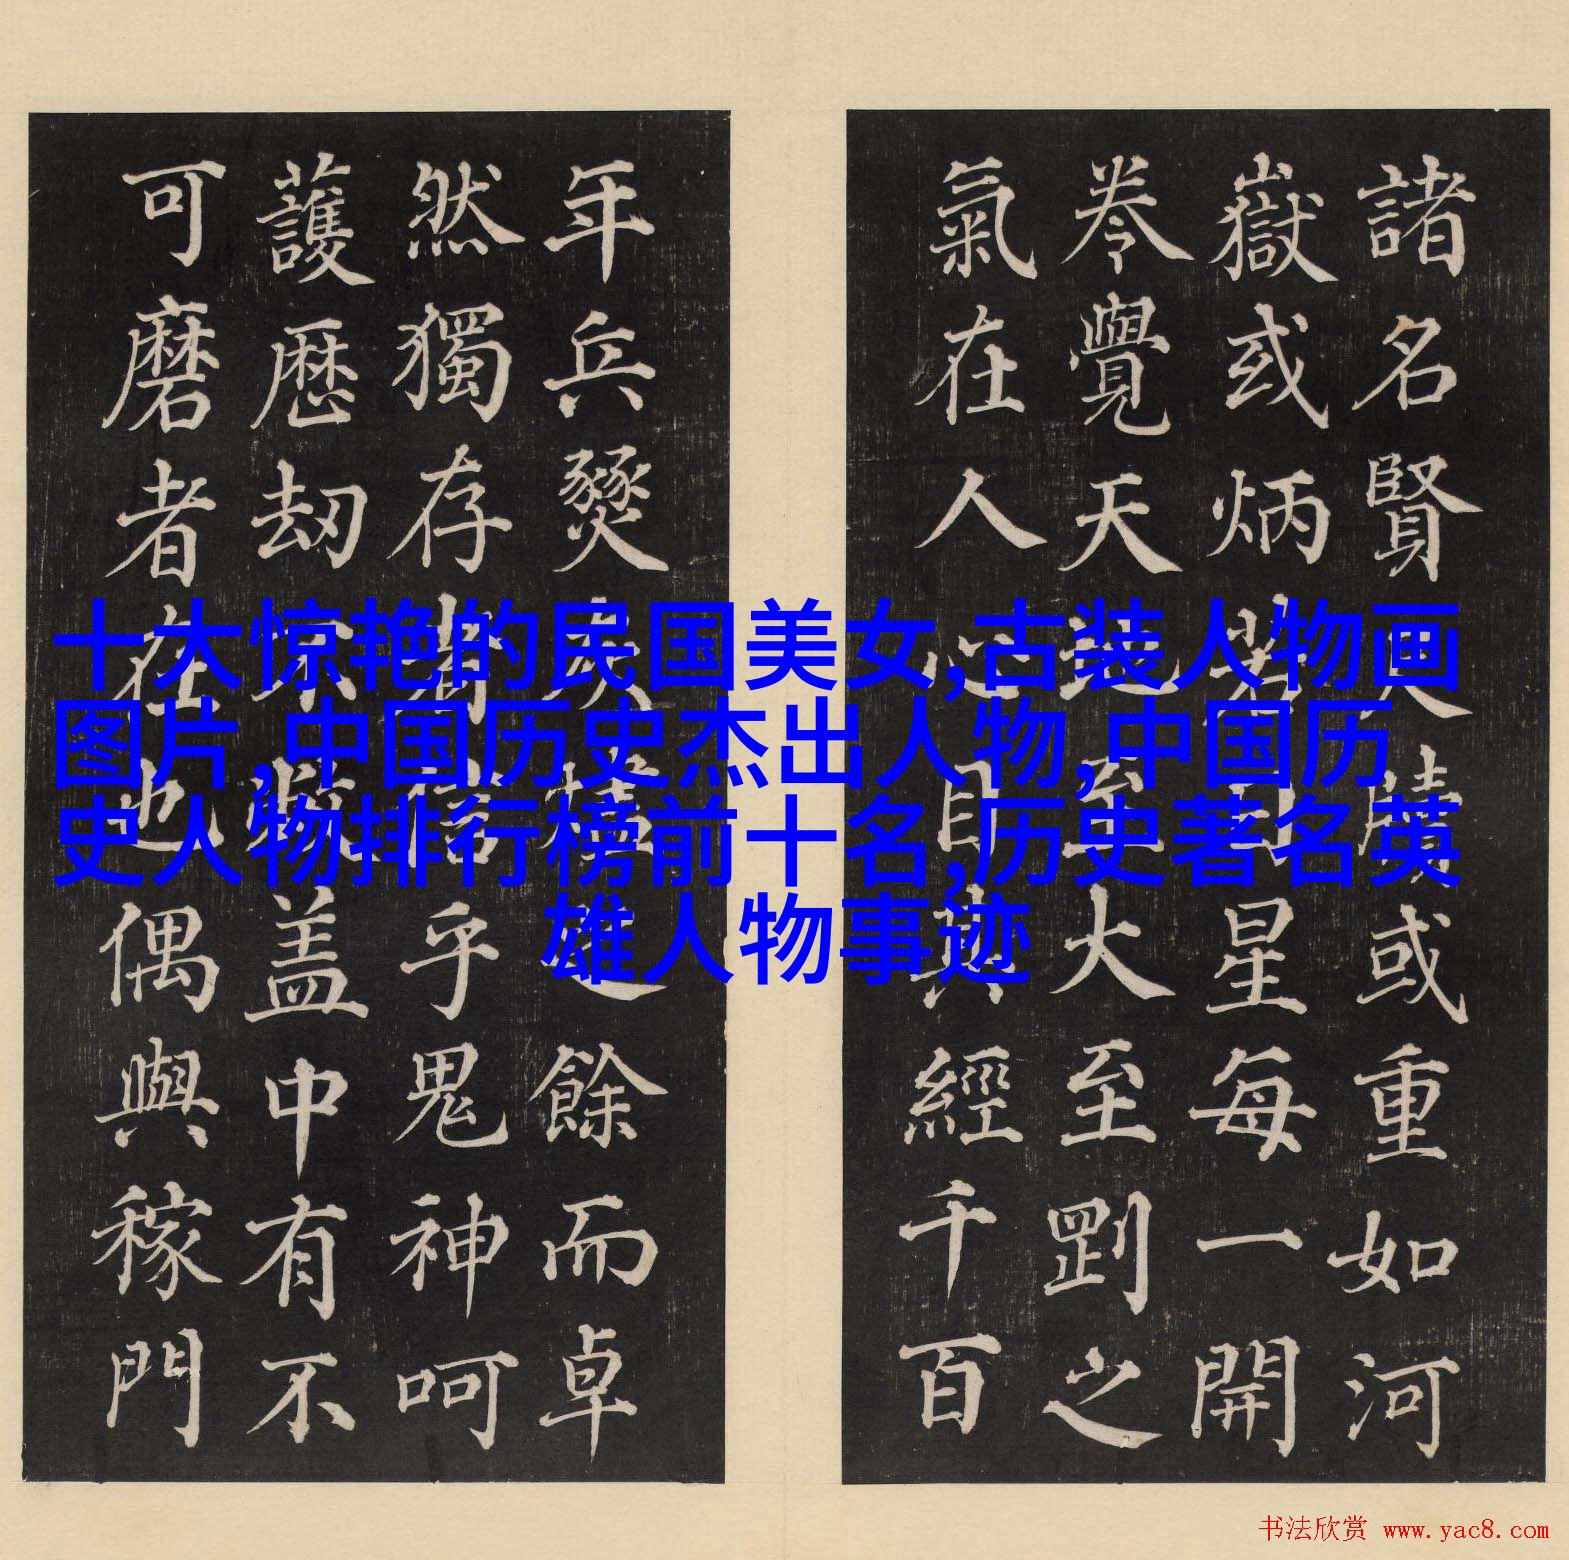 十大惊艳的民国美女,古装人物画
图片,中国历史杰出人物,中国历
史人物排行榜前十名,历史著名英
雄人物事迹
諸名賢尺牘或重如河
嶽或炳若日星每一開
卷覺天地至大至剛之
氣在人心目其經千百
年兵燹灰燼之餘而卓
然獨存者信乎鬼神呵
護歴劫不毀盖中有不
可磨者在也偶與稼門
书法欣赏 www.yac8.com